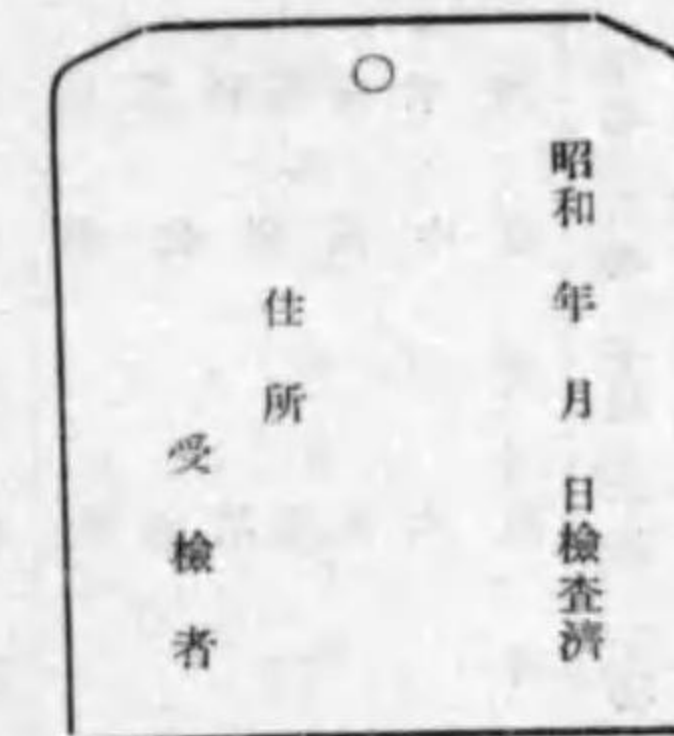 昭和　年　月　日檢査濟
住所
受檢者